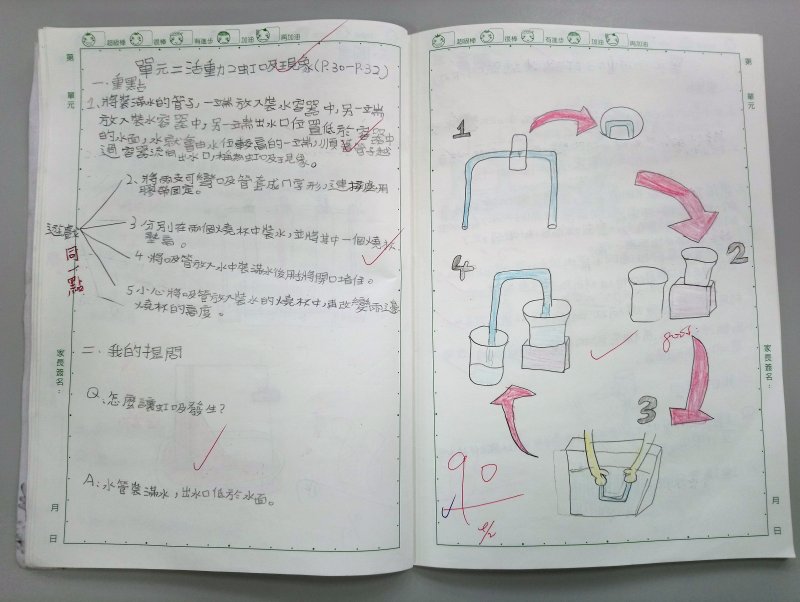 超級棒 很棒 有進步 加油 再加油
第 單元
單元二活動2虹吸現象(P.30-P.32)
一.重點
1.將裝滿水的管子,一端放入裝水容器中,另一端
放入裝水容器中,另一端出水口位置低於容器
的水面,水就會由水位較高的一端,順著管子越
過容器流向出水口,稱為虹吸現象。
2.將兩支可彎吸管套成ㄇ字形,連接處用
膠帶固定。
遊戲
3.分別在兩個燒杯中裝水,並將其中一個燒杯
墊高。
同一點
4.將吸管放入水中裝滿水後,
5.小心將吸管放入裝水的燒杯中,再改變兩邊
燒杯的高度。
二.我的提問
Q:怎麼讓虹吸發生?
A:水管裝滿水,出水口低於水面。
家長簽名:
月 日
超級棒 很棒 有進步 加油 再加油
第 單元
1
2
4
good
3
90
家長簽名:
月 日